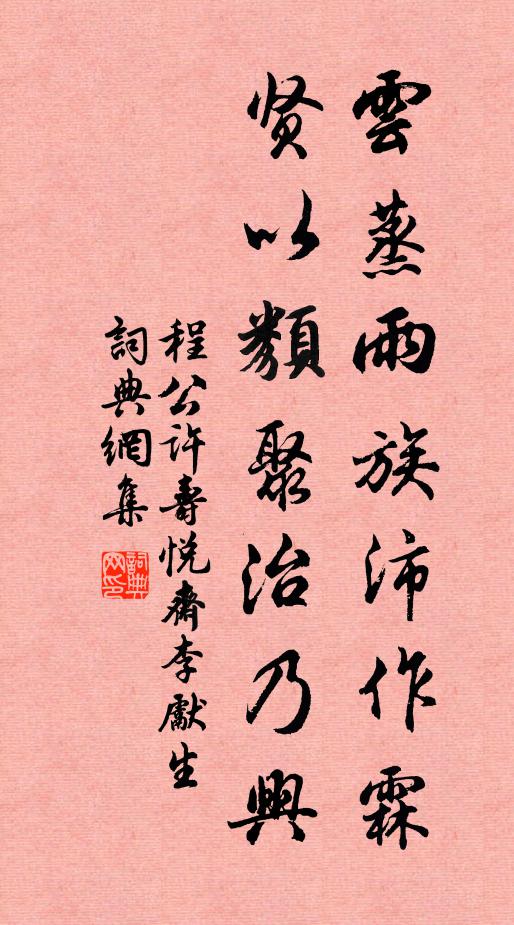 雲蒸雨族沛作霖
贤以類聚治乃興
程公许壽悦齋李獻生
詞典網集
詞典網印